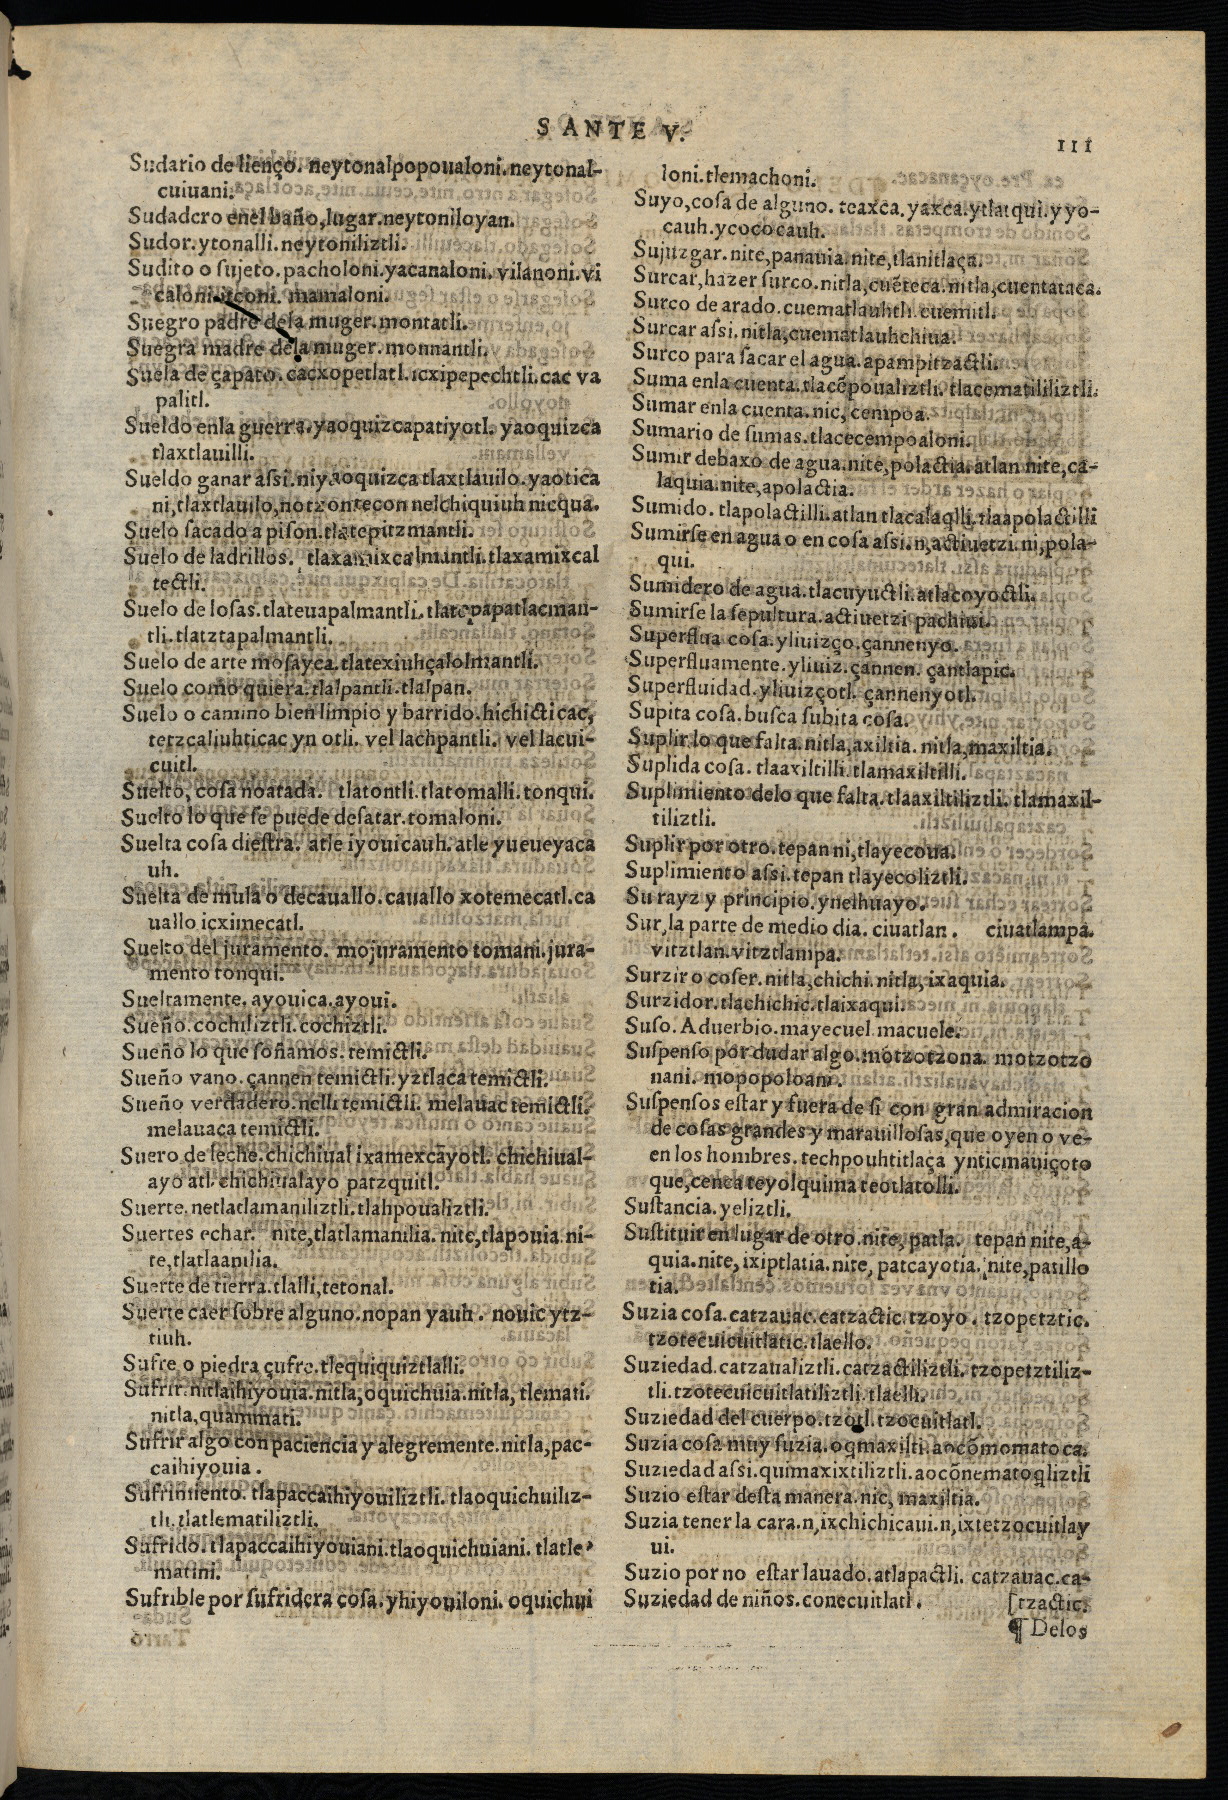 S ANTE V.
111
Sudario de lienço. neytonalpopoualoni. neytonal-
cuiuani.
Sudadero enel baño, lugar. neytoniloyan.
Sudor. ytonalli. neytoniliztli.
Sudito o sujeto. pacholoni. yacanaloni. vilanoni. vi
caloni. itconi. mamaloni.
Suegro padre dela muger. montatli.
Suegra madre dela muger. monnantli.
Suela de çapato. cacxopetlatl. icxipepechtli. cac va
palitl.
Sueldo enla guerra. yaoquizcapatiyotl. yaoquizca
tlaxtlauilli.
Sueldo ganar assi. ni, yaoquizca tlaxtlauilo. yaotica
ni, tlaxtlauilo, notzontecon nelchiquiuh nicqua.
Suelo sacado a pison. tlatepitzmantli.
Suelo de ladrillos. tlaxamixcalmantli. tlaxamixcal
tectli.
Suelo de losas. tlateuapalmantli. tlatepapatlacman-
tli. tlatztapalmantli.
Suelo de arte mosayca. tlatexiuhçalolmantli.
Suelo como quiera. tlalpantli. tlalpan.
Suelo o camino bien limpio y barrido. hichicticac,
tetzcaliuhticac yn otli. vel lachpantli. vel lacui-
cuitl.
Suelto, cosa noatada. tlatontli. tlatomalli. tonqui.
Suelto lo que se puede desatar. tomaloni.
Suelta cosa diestra. atle iyouicauh. atle yueueyaca
uh.
Suelta de mula o decauallo. cauallo xotemecatl. ca
uallo icximecatl.
Suelto del juramento. mojuramento tomani. jura-
mento tonqui.
Sueltamente. ayouica. ayoui.
Sueño. cochiliztli. cochiztli.
Sueño lo que soñamos. temictli.
Sueño vano. çannen temictli. yztlaca temictli.
Sueño verdadero. nelli temictli. melauac temictli.
melauaca temictli.
Suero de leche. chichiual ixamexcãyotl. chichiual-
ayo atl. chichiualayo patzquitl.
Suerte. netlatlamaniliztli. tlahpoualiztli.
Suertes echar. nite, tlatlamanilia. nite, tlapouia. ni-
te, tlatlaanilia.
Suerte de tierra. tlalli, tetonal.
Suerte caer sobre alguno. nopan yauh. nouic ytz-
tiuh.
Sufre o piedra çufre. tlequiquiztlalli.
Sufrir. nitlaihiyouia. nitla, oquichuia. nitla, tlemati.
nitla, quammati.
Sufrir algo con paciencia y alegremente. nitla, pac-
caihiyouia.
Sufrimiento. tlapaccaihiyouiliztli. tlaoquichuiliz-
tli. tlatlematiliztli.
Sufrido. tlapaccaihiyouiani. tlaoquichuiani. tlatle-
matini.
Sufrible por sufridera cosa. yhiyouiloni. oquichui
loni. tlemachoni.
Suyo, cosa de alguno. teaxca. yaxca. ytlatqui. y yo-
cauh. ycococauh.
Sujuzgar. nite, panauia. nite, tlanitlaça.
Surcar, hazer surco. nitla, cuẽteca. nitla, cuentataca.
Surco de arado. cuematlauhtli. cuemitl.
Surcar assi. nitla, cuematlauhchiua.
Surco para sacar el agua. apampitzactli.
Suma enla cuenta. tlacẽpoualiztli. tlacematililiztli.
Sumar enla cuenta. nic, cempoa.
Sumario de sumas. tlacecempoaloni.
Sumir debaxo de agua. nite, polactia. atlan nite, ca-
laquia. nite, apolactia.
Sumido. tlapolactilli. atlan tlacalaqlli. tlaapolactilli
Sumirse en agua o en cosa assi. n, actiuetzi. ni, pola-
qui.
Sumidero de agua. tlacuyuctli. atlacoyoctli.
Sumirse la sepultura. actiuetzi pachiui.
Superflua cosa. yliuizço. çannenyo.
Superfluamente. yliuiz. çannen. çantlapic.
Superfluidad. yliuizçotl. çannenyotl.
Supita cosa. busca subita cosa.
Suplir lo que falta. nitla, axiltia. nitla, maxiltia.
Suplida cosa. tlaaxiltilli. tlamaxiltilli.
Suplimiento delo que falta. tlaaxiltiliztli. tlamaxil-
tiliztli.
Suplir por otro. tepan ni, tlayecoua.
Suplimiento assi. tepan tlayecoliztli.
Su rayz y principio. ynelhuayo.
Sur, la parte de medio dia. ciuatlan. ciuatlampa.
vitztlan. vitztlampa.
Surzir o coser. nitla, chichi. nitla, ixaquia.
Surzidor. tlachichic. tlaixaqui.
Suso. Aduerbio. mayecuel macuele.
Suspenso por dudar algo. motzotzona. motzotzo
nani. mopopoloani.
Suspensos estar y fuera de si con gran admiracion
de cosas grandes y marauillosas, que oyen o ve-
en los hombres. techpouhtitlaça ynticmauiçoto
que, cenca teyolquima teotlatolli.
Sustancia. yeliztli.
Sustituir en lugar de otro. nite, patla. tepan nite, a-
quia. nite, ixiptlatia. nite, patcayotia. nite, patillo
tia.
Suzia cosa. catzauac. catzactic. tzoyo. tzopetztic.
tzotecuicuitlatic. tlaello.
Suziedad. catzaualiztli. catzactiliztli. tzopetztiliz-
tli. tzotecuicuitlatiliztli. tlaelli.
Suziedad del cuerpo. tzotl. tzocuitlatl.
Suzia cosa muy suzia. oqmaxilti. aocõmomatoca.
Suziedad assi. quimaxixtiliztli. aocõnematoqliztli
Suzio estar desta manera. nic, maxiltia.
Suzia tener la cara. n, ixchichicaui. n, ixtetzocuitlay
ui.
Suzio por no estar lauado. atlapactli. catzauac. ca-
Suziedad de niños. conecuitlatl. [tzactic.
¶ Delos